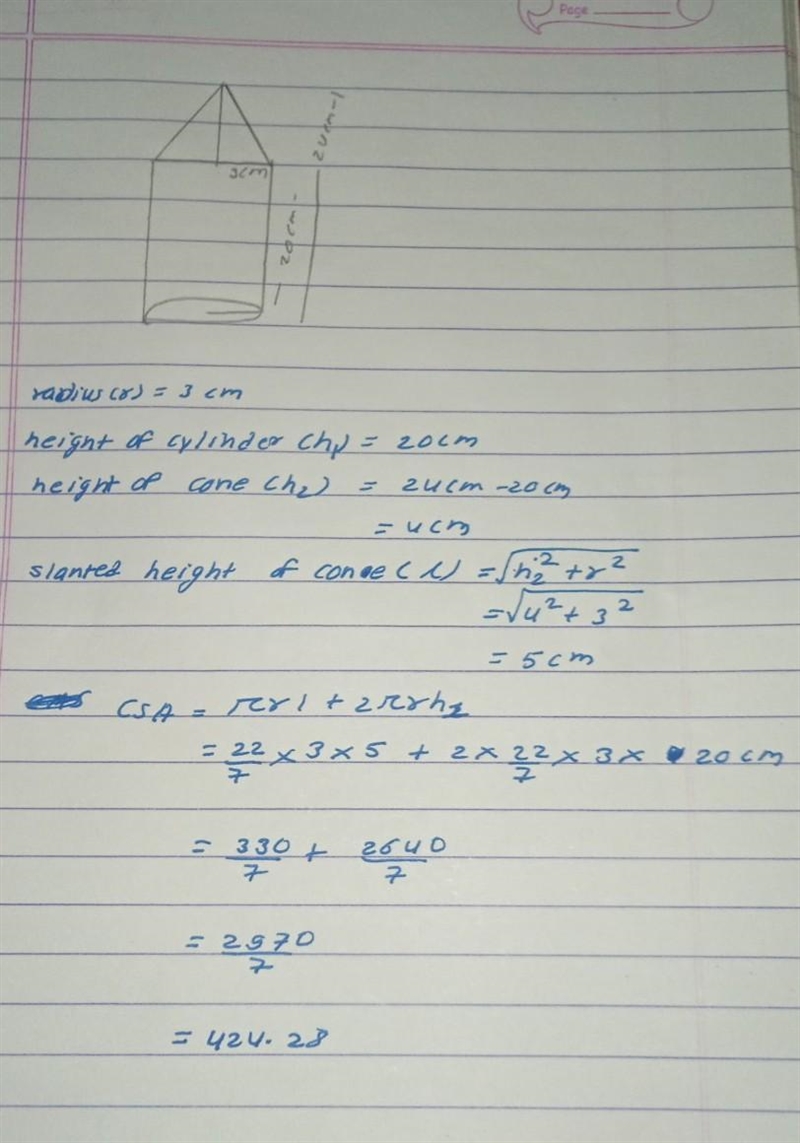 Page
3cm
20cm
24cm
radius(r) = 3 cm
height of cylinder (h1) = 20cm
height of cone (h2) = 24cm - 20cm
= 4cm
slanted height of cone (l) = √h2² + r²
= √4² + 3²
= 5cm
CSA = πrl + 2πrh1
= 22/7 × 3 × 5 + 2 × 22/7 × 3 × 20cm
= 330/7 + 2640/7
= 2970/7
= 424.28